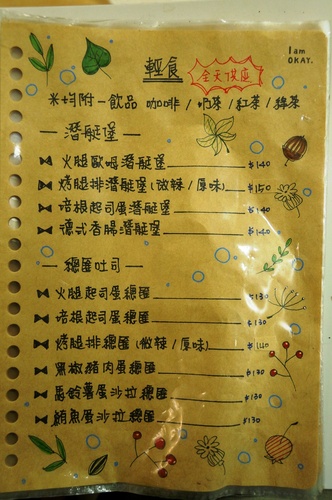 I am
OKAY.
輕食 全天供應
米均附一飲品 咖啡 / 奶茶 / 紅茶 / 綠茶
— 潛艇堡 —
火腿歐姆潛艇堡 $140
烤腿排潛艇堡 (微辣 / 原味) $150
培根起司蛋潛艇堡 $140
德式香腸潛艇堡 $140
— 總匯吐司 —
火腿起司蛋總匯 $130
培根起司蛋總匯 $130
烤腿排總匯 (微辣 / 原味) $140
黑椒豬肉蛋總匯 $130
馬鈴薯蛋沙拉總匯 $130
鮪魚蛋沙拉總匯 $130